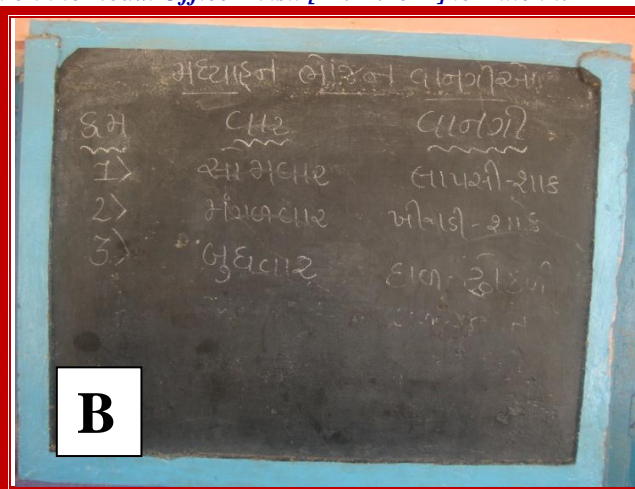 મધ્યાહન ભોજન વાનગીઓ
ક્રમ વાર વાનગી
1> સોમવાર લાપસી-શાક
2> મંગળવાર ખીચડી-શાક
3> બુધવાર દાળ-ઢોકળી
B